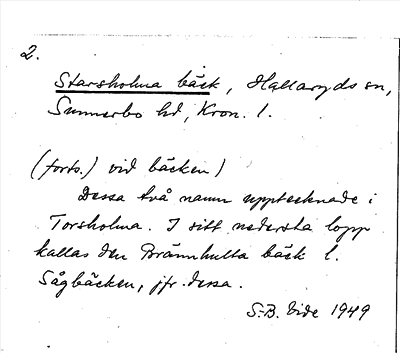 2.
Starsholma bäck, Hallaryds sn,
Sunnerbo hd, Kron. l.
(forts.) vid bäcken)
Dessa två namn upptecknade i
Torsholma. I sitt nedersta lopp
kallas den Brännhulta bäck l.
Sågbäcken, jfr. dessa.
S-B. Vide 1949